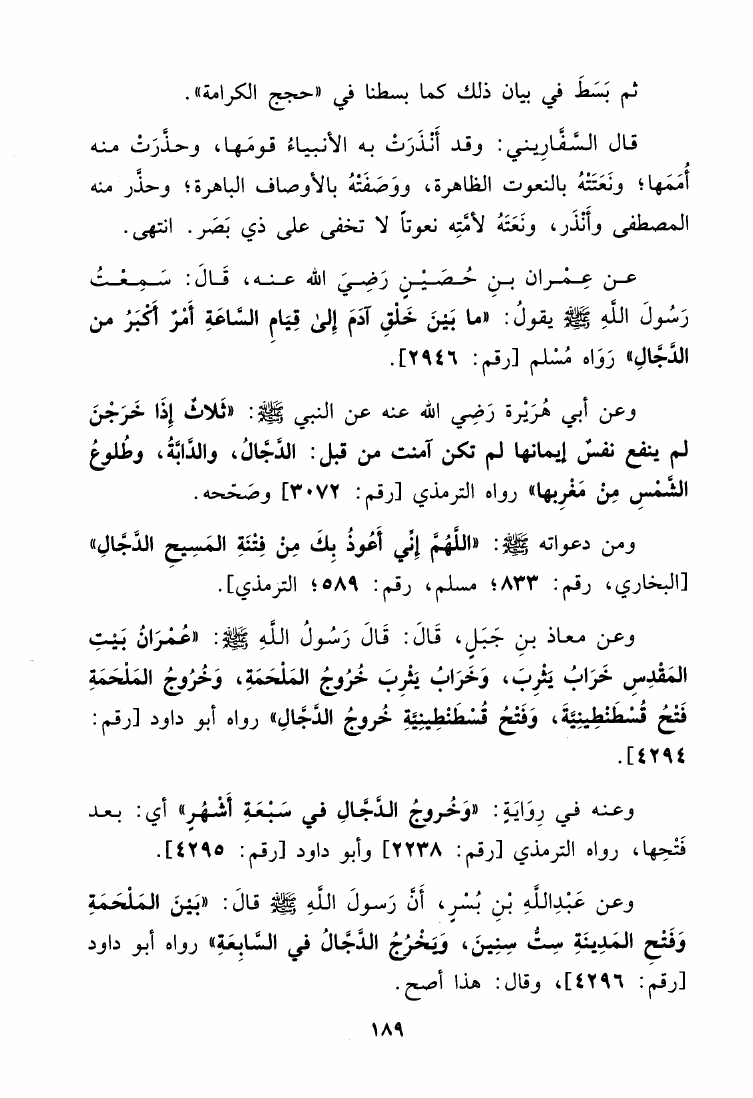 ثم بَسَطَ في بيان ذلك كما بسطنا في «حجج الكرامة».
قال السَّفَّاريني: وقد أَنْذَرَتْ به الأنبياءُ قومَها، وحذَّرَتْ منه
أُمَمَها؛ ونَعَتَتْهُ بالنعوت الظاهرة، ووَصَفَتْهُ بالأوصاف الباهرة؛ وحذَّر منه
المصطفى وأَنْذَر، ونَعَتَهُ لأمَّتِه نعوتاً لا تخفى على ذي بَصَر. انتهى.
عن عِمْران بنِ حُصَيْنٍ رَضِيَ الله عنه، قَالَ: سَمِعْتُ
رَسُولَ اللَّهِ ﷺ يقولُ: «ما بَيْنَ خَلْقِ آدَمَ إلىٰ قِيَامِ السَّاعَةِ أَمْرٌ أَكْبَرُ من
الدَّجَّالِ» رَوَاه مُسْلم [رقم: ٢٩٤٦].
وعن أبي هُرَيْرة رَضِي الله عنه عن النبي ﷺ: «ثَلاثٌ إِذَا خَرَجْنَ
لم ينفع نفسٌ إيمانها لم تكن آمنت من قبل: الدَّجَّالُ، والدَّابَّةُ، وطُلوعُ
الشَّمْسِ مِنْ مَغْرِبها» رواه الترمذي [رقم: ٣٠٧٢] وصَحَّحه.
ومن دعواته ﷺ: «اللَّهُمَّ إنِّي أَعُوذُ بِكَ مِنْ فِتْنَةِ المَسيحِ الدَّجَّالِ»
[البخاري، رقم: ٨٣٣؛ مسلم، رقم: ٥٨٩؛ الترمذي].
وعن معاذ بنِ جَبَلٍ، قَالَ: قَالَ رَسُولُ اللَّهِ ﷺ: «عُمْرَانُ بَيْتِ
المَقْدِسِ خَرَابُ يَثْرِبَ، وَخَرَابُ يَثْرِبَ خُرُوجُ المَلْحَمَةِ، وَخُرُوجُ المَلْحَمَةِ
فَتْحُ قُسْطَنْطِينِيَّةَ، وَفَتْحُ قُسْطَنْطِينِيَّةِ خُروجُ الدَّجَّالِ» رواه أبو داود [رقم:
٤٢٩٤].
وعنه في رِوَايَةٍ: «وَخُروجُ الدَّجَّالِ في سَبْعَةِ أَشْهُرٍ» أي: بعد
فَتْحِها، رواه الترمذي [رقم: ٢٢٣٨] وأبو داود [رقم: ٤٢٩٥].
وعن عَبْدِاللَّهِ بْنِ بُسْرٍ، أَنَّ رَسولَ اللَّهِ ﷺ قالَ: «بَيْنَ المَلْحَمَةِ
وَفَتْحِ المَدِينَةِ سِتُّ سِنِينَ، وَيَخْرُجُ الدَّجَّالُ في السَّابِعَةِ» رواه أبو داود
[رقم: ٤٢٩٦]، وقال: هذا أصح.
١٨٩